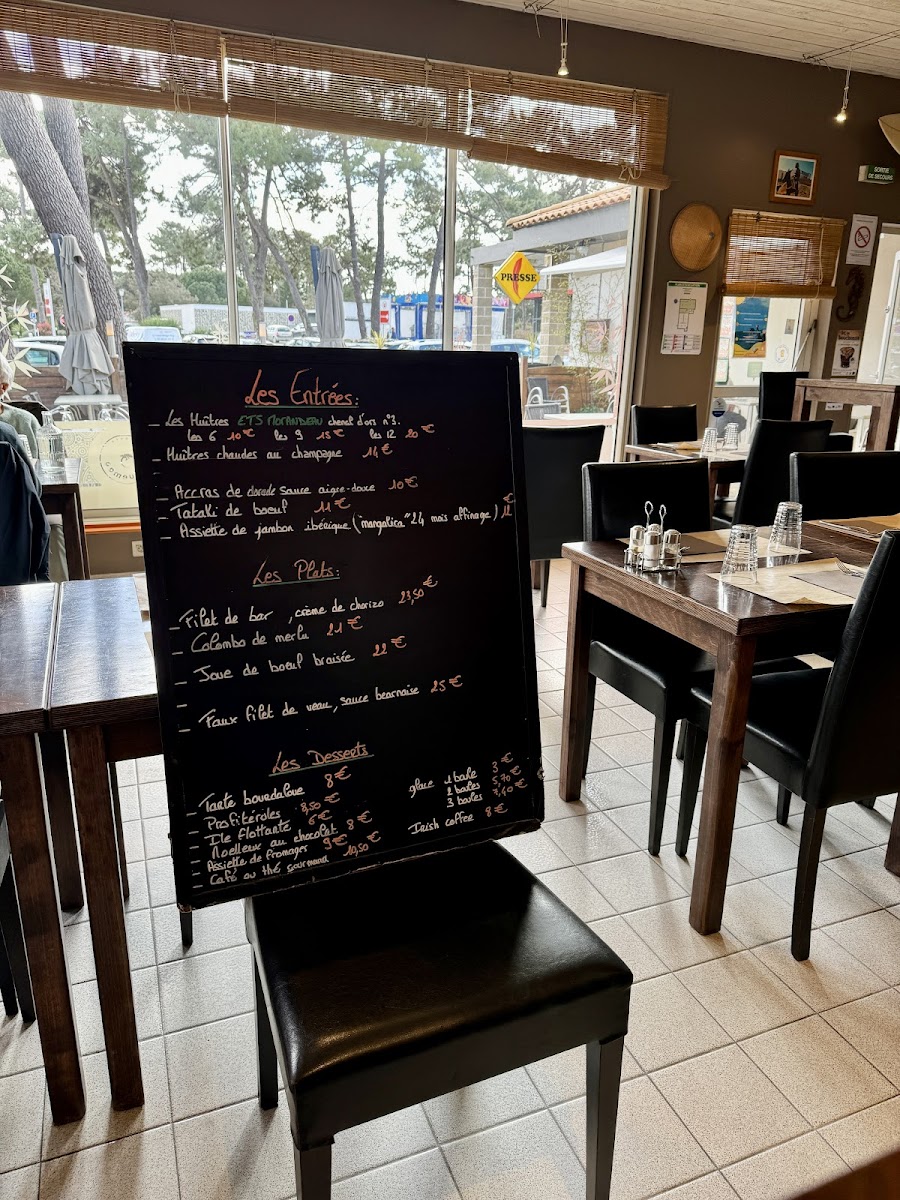 Les Entrées:
_ Les Huîtres ETS MORANDEAU chenet d'ors n°3.
les 6 10€ les 9 15€ les 12 20€
_ Huîtres chaudes au champagne 14€
_ Accras de dorade sauce aigre-douce 10€
_ Tataki de boeuf 11€
_ Assiette de jambon ibérique ("mangalica" 24 mois affinage) 12€
Les Plats:
_ Filet de bar , crème de chorizo 23,50€
_ Colombo de merlu 21€
_ Joue de boeuf braisée 22€
_
_ Faux filet de veau, sauce bearnaise 25€
Les Desserts
_ Tarte bourdaloue 8€
_ Profitéroles 8,50€
_ Ile flottante 6€
_ Moelleux au chocolat 8€
_ Assiette de fromages 9€
_ Café ou thé gourmand 10,50€
glace 1 boule 3€
2 boules 5,70€
3 boules 7,40€
Irish coffee 8€
PRESSE
SORTIE
DE SECOURS